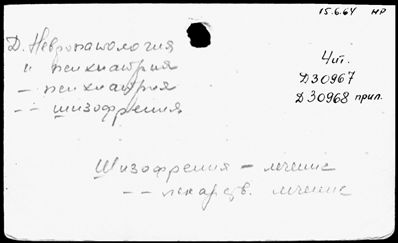 15.6.64 НР
Д. Невропатология
" психиатрия
— психиатрия
— — шизофрения
4 ит.
Д30967
Д30968 прил.
Шизофрения — лечение
— — лекарств. лечение